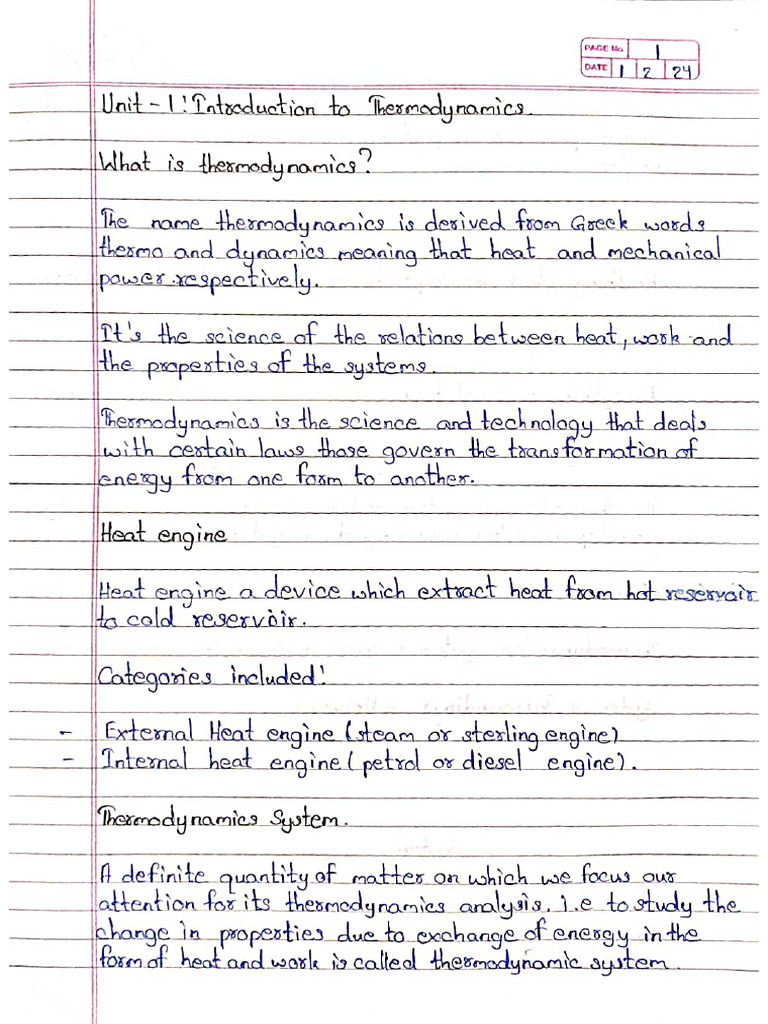 PAGE No. 1
DATE 1 2 24
Unit - 1: Introduction to Thermodynamics.
What is thermodynamics?
The name thermodynamics is derived from Greek words
thermo and dynamics meaning that heat and mechanical
power respectively.
It's the science of the relations between heat, work and
the properties of the systems.
Thermodynamics is the science and technology that deals
with certain laws those govern the transformation of
energy from one form to another.
Heat engine
Heat engine a device which extract heat from hot reservoir
to cold reservoir.
Categories included:
- External Heat engine (steam or sterling engine)
- Internal heat engine (petrol or diesel engine).
Thermodynamics System.
A definite quantity of matter on which we focus our
attention for its thermodynamics analysis. i.e to study the
change in properties due to exchange of energy in the
form of heat and work is called thermodynamic system.